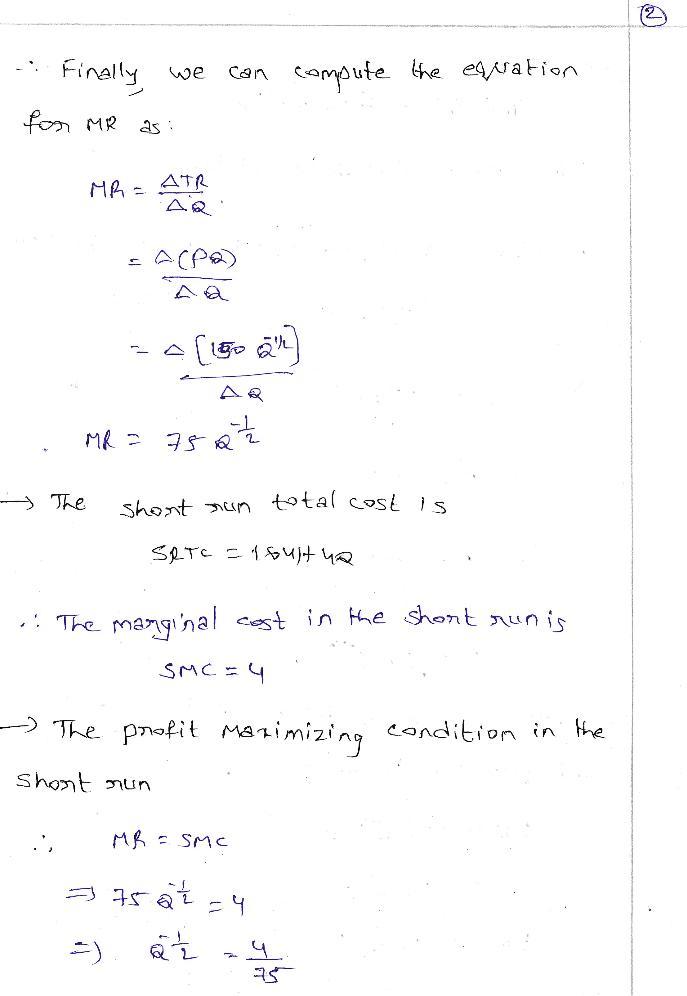 2
∴ Finally we can compute the equation
for MR as:
MR = ΔTR / ΔQ
= Δ(PQ) / ΔQ
= Δ[150 Q^-1/2] / ΔQ
MR = 75 Q^-1/2
→ The short run total cost is
SRTC = + 4Q
∴ The marginal cost in the short run is
SMC = 4
→ The profit maximizing condition in the
short run
∴, MR = SMC
⇒ 75 Q^-1/2 = 4
⇒) Q^-1/2 = 4/75